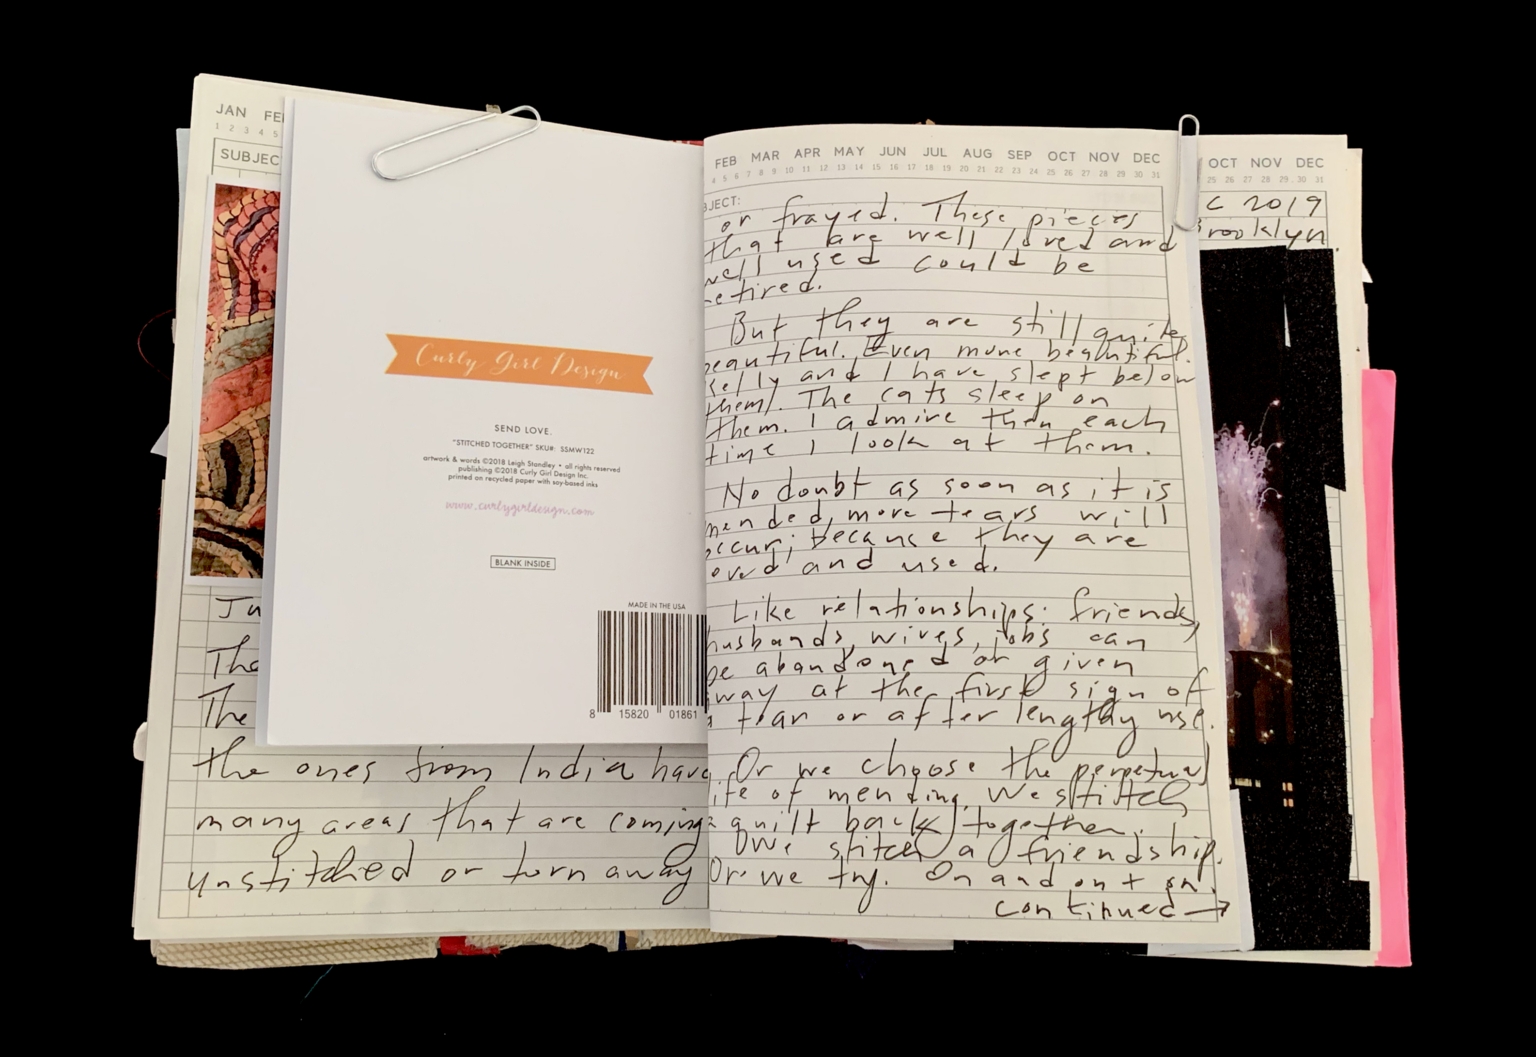 JAN FE
1 2 3 4 5
SUBJEC
Curly Girl Design
SEND LOVE.
"STITCHED TOGETHER" SKU#: SSMW122
artwork & words ©2018 Leigh Standley • all rights reserved
publishing ©2018 Curly Girl Design Inc.
printed on recycled paper with soy-based inks
www.curlygirldesign.com
BLANK INSIDE
MADE IN THE USA
8 15820 01861
Ju
The
The
the ones from India have
many areas that are coming
unstitched or torn away
FEB MAR APR MAY JUN JUL AUG SEP OCT NOV DEC
4 5 6 7 8 9 10 11 12 13 14 15 16 17 18 19 20 21 22 23 24 25 26 27 28 29 30 31
BJECT:
or frayed. These pieces
that are well loved and
well used could be
retired.
But they are still quite
beautiful. Even more beautiful.
Kelly and I have slept below
them. The cats sleep on
them. I admire them each
time I look at them.
No doubt as soon as it is
mended, more tears will
occur; because they are
oved and used.
Like relationships: friends,
husbands, wives, jobs can
be abandoned or given
away at the first sign of
a tear or after lengthy use.
Or we choose the perpetual
life of mending. We stitch
a quilt back together.
Or we stitch a friendship.
Or we try. On and on + on.
continued →
OCT NOV DEC
25 26 27 28 29 30 31
C 2019
Brooklyn